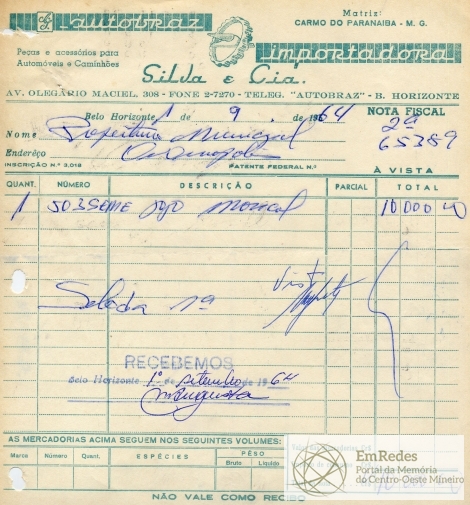 autobraz
Matriz:
CARMO DO PARANAIBA - M. G.
Peças e acessórios para
Automóveis e Caminhões
importadora
Silva & Cia.
AV. OLEGÁRIO MACIEL, 308 - FONE 2-7270 - TELEG. "AUTOBRAZ" - B. HORIZONTE
Belo Horizonte, 1 de 9 de 1964 NOTA FISCAL
2ª
Nome Prefeitura Municipal 65389
Endereço
INSCRIÇÃO N.º 3.018 PATENTE FEDERAL N.º À VISTA
QUANT. NÚMERO DESCRIÇÃO PARCIAL TOTAL
1 10000
Visto
Selada 1ª
RECEBEMOS
Belo Horizonte 1º de setembro de 1964
AS MERCADORIAS ACIMA SEGUEM NOS SEGUINTES VOLUMES:
Marca Número Quant. ESPÉCIES PÊSO
Bruto Líquido
NÃO VALE COMO RECIBO
EmRedes
Portal da Memória
do Centro-Oeste Mineiro